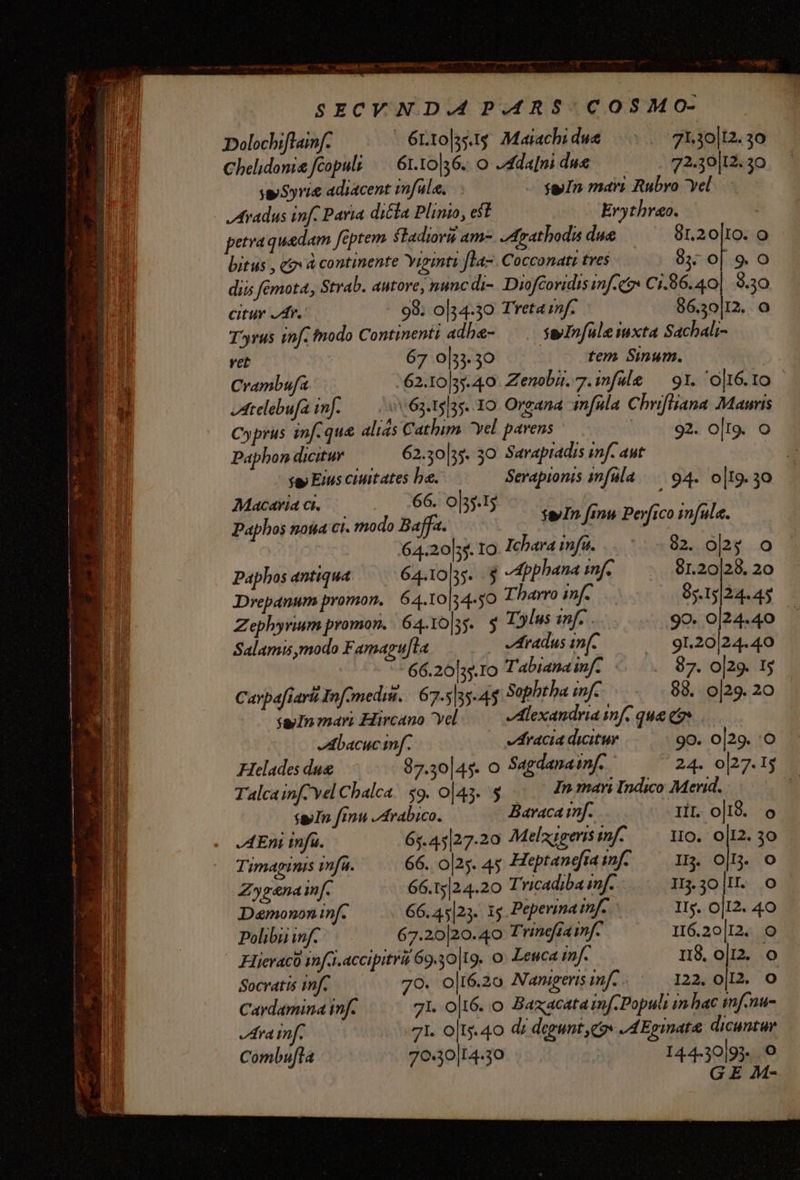 SECVNDA PARS COSMO-
Dolochiſtainſ. 61.10|35.15
Chelidoniæ ſcopuli 61.10|36. 0
Syriæ adiacent inſulæ.
Aradus inſ. Paria dicta Plinio, eſt
petra quædam ſeptem ſtadiorū am-
bitus, & à continente viginti ſta-
diis ſemota, Strab. autore, nunc di-
citur Ar. 98. 0|34.30
Tyrus inſ. modo Continenti adhæ-
ret 67 0|33.30
Crambuſa 62.10|35.40
Atelebuſa inſ. 63.15|35. 10
Cyprus inſ. quæ aliàs Cathim vel
Paphon dicitur 62.30|35. 30
Eius ciuitates hæ.
Macaria ci. 66. 0|35.15
Paphos noua ci. modo Baffa.
64.20|35. 10
Paphos antiqua 64.10|35. 5
Drepanum promon. 64.10|34.50
Zephyrium promon. 64.10|35. 5
Salamis, modo Famaguſta
66.20|35.10
Carpaſiarū Inſ. mediū. 67.5|35.45
In mari Hircano vel
Abacuc inſ.
Helades duæ 87.30|45. 0
Talca inſ. vel Chalca 59. 0|43. 5
In ſinu Arabico.
Æni inſu. 65.45|27.20
Timaginis inſu. 66. 0|25. 45
Zygæna inſ. 66.15|24.20
Dæmonon inſ. 66.45|23. 15
Polibii inſ. 67.20|20.40
Hieracō inſ.i.accipitrū 69.30|19. 0
Socratis inſ. 70. 0|16.20
Cardamina inſ. 71. 0|16. 0
Ara inſ. 71. 0|15.40
Combuſta 70.30|14.30
Maiachi duæ 71.30|12.30
Adaſni duæ 72.30|12.30
In mari Rubro vel
Erythræo.
Agathodis duæ 81.20|10. 0
Cocconati tres 83. 0| 9. 0
Dioſcoridis inſ. & Ci. 86.40| 9.30
Treta inſ. 86.30|12. 0
Inſulæ iuxta Sachali-
tem Sinum.
Zenobii. 7. inſulæ 91. 0|16.10
Organa inſula Chriſtiana Mauris
parens 92. 0|19. 0
Sarapiadis inſ. aut
Serapionis inſula 94. 0|19.30
In ſinu Perſico inſulæ.
Ichara inſu. 82. 0|25 0
Apphana inſ. 81.20|28. 20
Tharro inſ. 85.15|24.45
Tylus inſ. 90. 0|24.40
Aradus inſ. 91.20|24.40
Tabiana inſ. 87. 0|29. 15
Sophtha inſ. 88. 0|29. 20
Alexandria inſ. quæ &
Aracia dicitur 90. 0|29. 0
Sagdana inſ. 24. 0|27.15
In mari Indico Merid.
Baraca inſ. 111. 0|18. 0
Melzigeris inſ. 110. 0|12. 30
Heptaneſia inſ. 113. 0|13. 0
Tricadiba inſ. 113.30|11. 0
Peperina inſ. 115. 0|12. 40
Trineſia inſ. 116.20|12. 0
Leuca inſ. 118. 0|12. 0
Nanigeris inſ. 122. 0|12. 0
Bazacata inſ. Populi in hac inſ. nu-
di degunt, & Æginatæ dicuntur
144.30|93. 0
GEM-